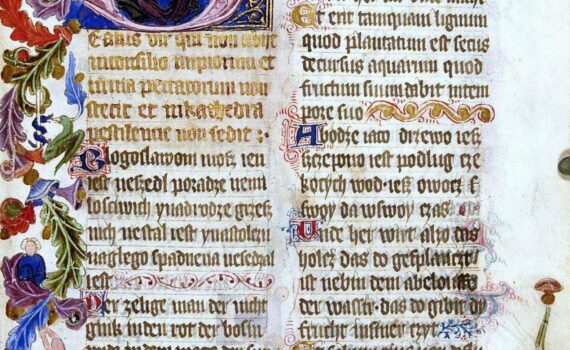 eatus vir qui non abijt
in consilio impiorum et
in via peccatorum non
stetit et in kathedra
pestilencie non sedit :
Bogoslawoni møsz ien
iest neszedl po radze nemi
losciwich y na drodze grzesz
nich ne stal iest y na stolcu
naglego spadnena ne sedzal
iest
Der zelige man der nicht
gink in den rot der bosin
Et erit tamquam lignum
quod plantatum est secus
decursus aquarum quod
fructum suum dabit in tem
pore suo
A bødze iaco drzewo iesz
szczepono iest podlug cze
køcych wod iesz owocz s
swoy da w swoy czas
Unde her wirt alzo das
holcz das do geplanczit
ist nebin dem abelouffe
der wassir das do gibit dy
frucht in siner czyt